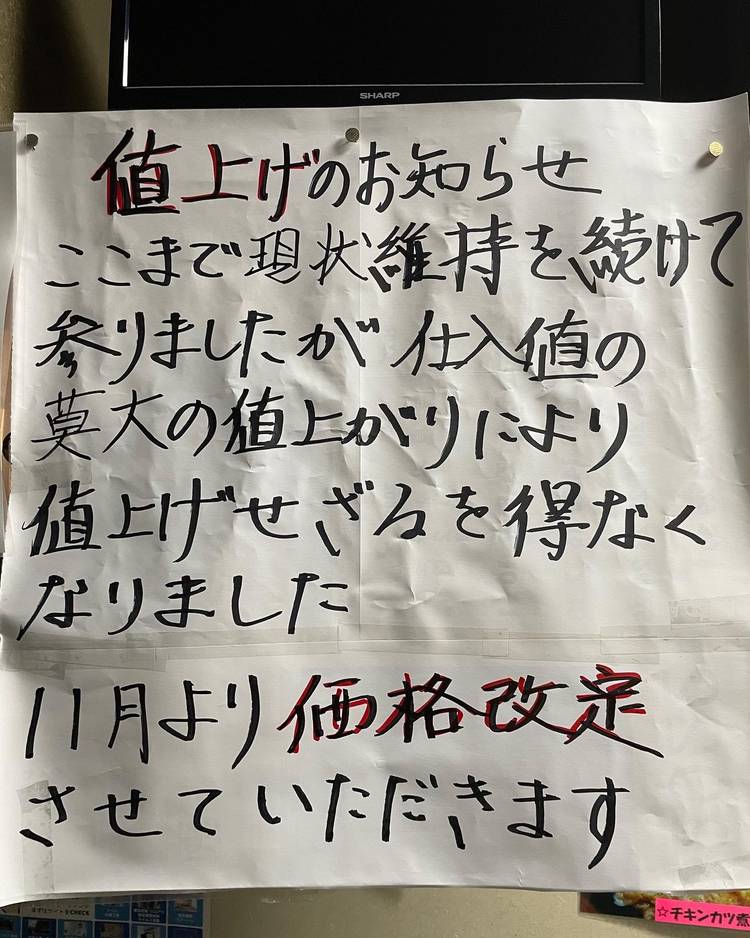 SHARP
値上げのお知らせ
ここまで現状維持を続けて
参りましたが仕入値の
莫大の値上がりにより
値上げせざるを得なく
なりました
11月より価格改定
させていただきます
☆チキンカツ煮